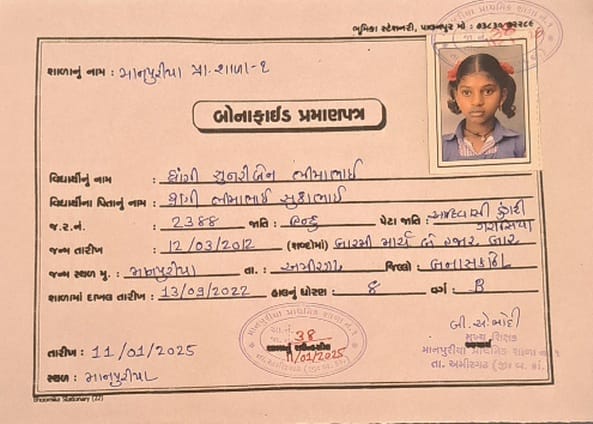 ભૂમિકા સ્ટેશનરી, પાલનપુર મો :
શાળાનું નામ : માનપુરીયા પ્રા. શાળા-૧
બોનાફાઈડ પ્રમાણપત્ર
વિદ્યાર્થીનું નામ : ડાંગી સુનરીબેન ભીમાભાઈ
વિદ્યાર્થીના પિતાનું નામ : ડાંગી ભીમાભાઈ સુકાભાઈ
જ.ર.નં. : 2388 જાતિ : હિન્દુ પેટા જાતિ : આદિવાસી ડુંગરી ગરાસિયા
જન્મ તારીખ : 12/03/2012 (શબ્દોમાં) બારમી માર્ચ બે હજાર બાર
જન્મ સ્થળ મુ. : માનપુરીયા તા. : અમીરગઢ જિલ્લો : બનાસકાંઠા
શાળામાં દાખલ તારીખ : 13/09/2022 હાલનું ધોરણ : 8 વર્ગ : B
આ.નં. 38
11/01/2025
બી.એ.મોદી
મુખ્ય શિક્ષક
માનપુરીયા પ્રાથમિક શાળા નં.૧
તા. અમીરગઢ (જી. બ. કાં.)
તારીખ : 11/01/2025
સ્થળ : માનપુરીયા
Bhoomika Stationary (22)